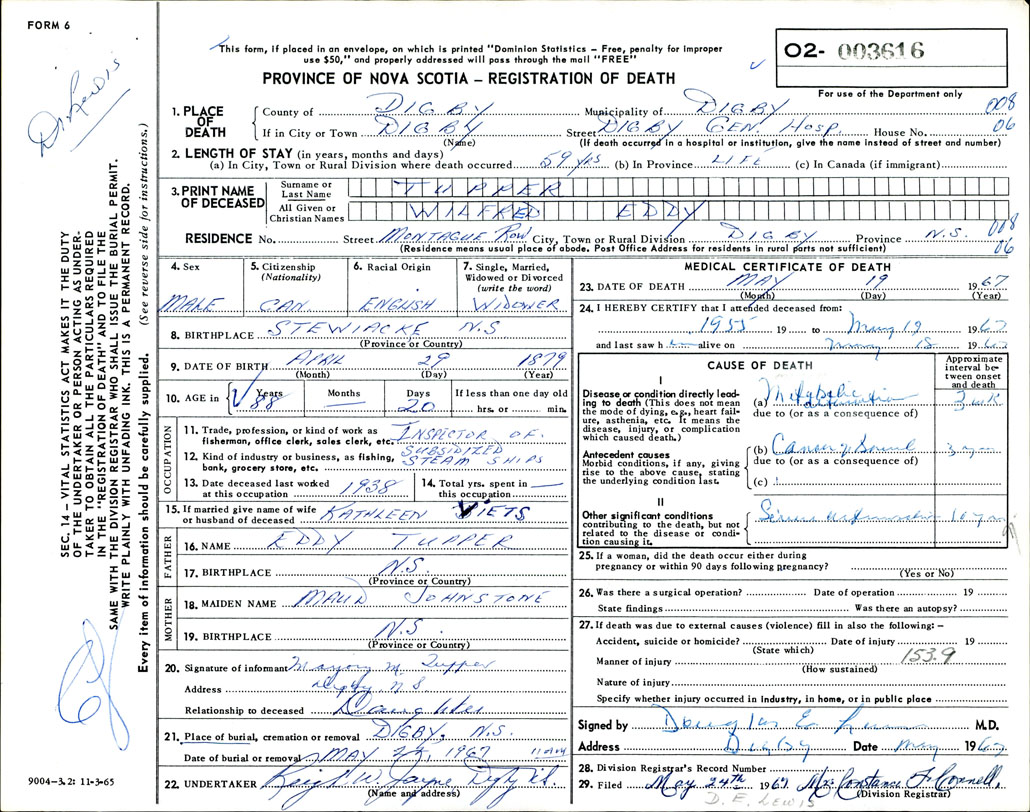 FORM 6
This form, if placed in an envelope, on which is printed "Dominion Statistics – Free, penalty for improper
use $50," and properly addressed will pass through the mail "FREE"
PROVINCE OF NOVA SCOTIA – REGISTRATION OF DEATH
O2- 003616
For use of the Department only
Dr. Lewis
SEC. 14 – VITAL STATISTICS ACT MAKES IT THE DUTY
OF THE UNDERTAKER OR PERSON ACTING AS UNDER-
TAKER TO OBTAIN ALL THE PARTICULARS REQUIRED
IN THE "REGISTRATION OF DEATH" AND TO FILE THE
SAME WITH THE DIVISION REGISTRAR WHO SHALL ISSUE THE BURIAL PERMIT.
WRITE PLAINLY WITH UNFADING INK. THIS IS A PERMANENT RECORD.
Every item of information should be carefully supplied. (See reverse side for instructions.)
1. PLACE OF DEATH
County of DIGBY Municipality of DIGBY 008
If in City or Town DIGBY Street DIGBY GEN. HOSP. House No. 06
(Name) (If death occurred in a hospital or institution, give the name instead of street and number)
2. LENGTH OF STAY (in years, months and days)
(a) In City, Town or Rural Division where death occurred 59 yrs (b) In Province LIFE (c) In Canada (if immigrant)
3. PRINT NAME OF DECEASED
Surname or Last Name TUPPER
All Given or Christian Names WILFRED EDDY
RESIDENCE No. Street MONTAGUE ROW City, Town or Rural Division DIGBY Province N.S. 008 06
(Residence means usual place of abode. Post Office Address for residents in rural parts not sufficient)
4. Sex MALE
5. Citizenship (Nationality) CAN
6. Racial Origin ENGLISH
7. Single, Married, Widowed or Divorced (write the word) WIDOWER
8. BIRTHPLACE STEWIACKE N.S
(Province or Country)
9. DATE OF BIRTH APRIL 29 1879
(Month) (Day) (Year)
10. AGE in Years 88 Months — Days 20 If less than one day old hrs. or min.
OCCUPATION
11. Trade, profession, or kind of work as fisherman, office clerk, sales clerk, etc. INSPECTOR OF
12. Kind of industry or business, as fishing, bank, grocery store, etc. SUBSIDIZED STEAM SHIPS
13. Date deceased last worked at this occupation 1938
14. Total yrs. spent in this occupation —
15. If married give name of wife or husband of deceased KATHLEEN VIETS
FATHER
16. NAME EDDY TUPPER
17. BIRTHPLACE N.S.
(Province or Country)
MOTHER
18. MAIDEN NAME MAUD JOHNSTONE
19. BIRTHPLACE N.S.
(Province or Country)
20. Signature of informant M. Tupper
Address Digby N S
Relationship to deceased Daughter
21. Place of burial, cremation or removal DIGBY, N.S.
Date of burial or removal MAY 1967
22. UNDERTAKER
(Name and address)
MEDICAL CERTIFICATE OF DEATH
23. DATE OF DEATH MAY 19 1967
(Month) (Day) (Year)
24. I HEREBY CERTIFY that I attended deceased from:
1955 19 to May 19 1967
and last saw h alive on May 18 1967
CAUSE OF DEATH
Approximate interval between onset and death
I
Disease or condition directly leading to death (This does not mean the mode of dying, e.g., heart failure, asthenia, etc. It means the disease, injury, or complication which caused death.)
(a) 3 wk
due to (or as a consequence of)
Antecedent causes
Morbid conditions, if any, giving rise to the above cause, stating the underlying condition last.
(b) Cancer
due to (or as a consequence of)
(c)
II
Other significant conditions
contributing to the death, but not related to the disease or condition causing it.
25. If a woman, did the death occur either during
pregnancy or within 90 days following pregnancy?
(Yes or No)
26. Was there a surgical operation? Date of operation 19
State findings Was there an autopsy?
27. If death was due to external causes (violence) fill in also the following: –
Accident, suicide or homicide? Date of injury 19
(State which)
153.9
Manner of injury
(How sustained)
Nature of injury
Specify whether injury occurred in Industry, in home, or in public place
Signed by M.D.
Address Digby Date May 1967
28. Division Registrar's Record Number
29. Filed May 24th 1967 Constance
(Division Registrar)
D. E. LEWIS
9004–3.2: 11-3-65